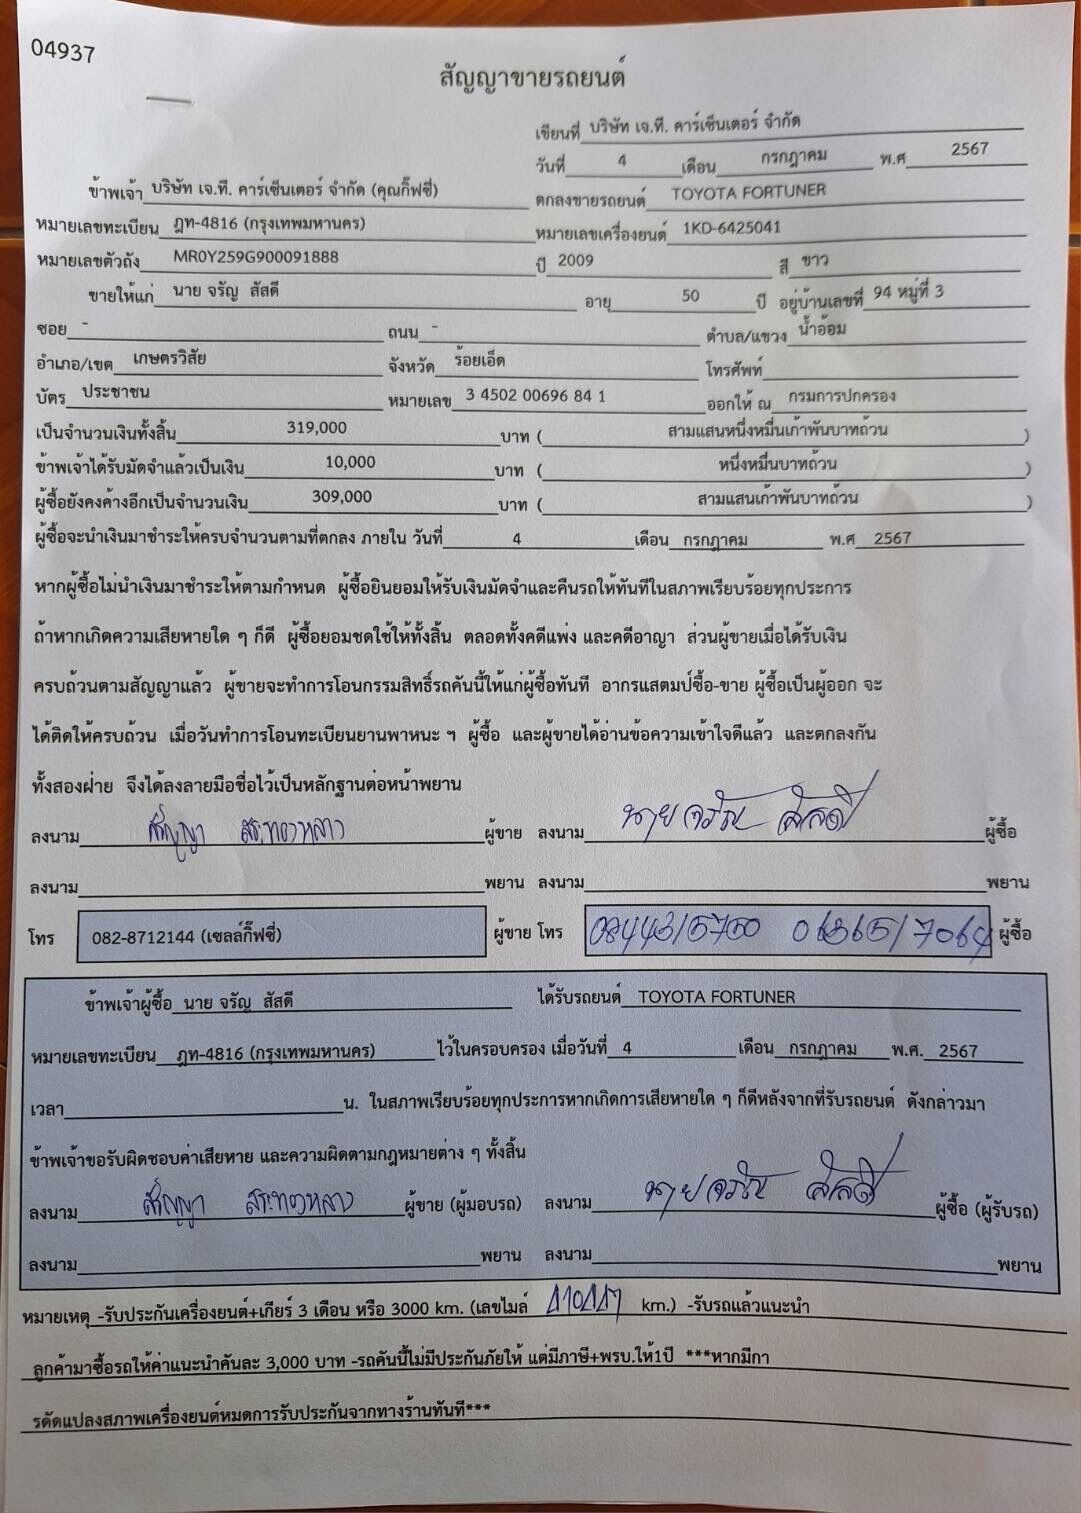 04937
สัญญาขายรถยนต์
เขียนที่ บริษัท เจ.ที. คาร์เซ็นเตอร์ จำกัด
วันที่ 4 เดือน กรกฎาคม พ.ศ 2567
ข้าพเจ้า บริษัท เจ.ที. คาร์เซ็นเตอร์ จำกัด (คุณกิ๊ฟซี่) ตกลงขายรถยนต์ TOYOTA FORTUNER
หมายเลขทะเบียน ฎท-4816 (กรุงเทพมหานคร) หมายเลขเครื่องยนต์ 1KD-6425041
หมายเลขตัวถัง MR0Y259G900091888 ปี 2009 สี ขาว
ขายให้แก่ นาย จรัญ สัสดี อายุ 50 ปี อยู่บ้านเลขที่ 94 หมู่ที่ 3
ซอย - ถนน - ตำบล/แขวง น้ำอ้อม
อำเภอ/เขต เกษตรวิสัย จังหวัด ร้อยเอ็ด โทรศัพท์
บัตร ประชาชน หมายเลข 3 4502 00696 84 1 ออกให้ ณ กรมการปกครอง
เป็นจำนวนเงินทั้งสิ้น 319,000 บาท ( สามแสนหนึ่งหมื่นเก้าพันบาทถ้วน )
ข้าพเจ้าได้รับมัดจำแล้วเป็นเงิน 10,000 บาท ( หนึ่งหมื่นบาทถ้วน )
ผู้ซื้อยังคงค้างอีกเป็นจำนวนเงิน 309,000 บาท ( สามแสนเก้าพันบาทถ้วน )
ผู้ซื้อจะนำเงินมาชำระให้ครบจำนวนตามที่ตกลง ภายใน วันที่ 4 เดือน กรกฎาคม พ.ศ 2567
หากผู้ซื้อไม่นำเงินมาชำระให้ตามกำหนด ผู้ซื้อยินยอมให้รับเงินมัดจำและคืนรถให้ทันทีในสภาพเรียบร้อยทุกประการ
ถ้าหากเกิดความเสียหายใด ๆ ก็ดี ผู้ซื้อยอมชดใช้ให้ทั้งสิ้น ตลอดทั้งคดีแพ่ง และคดีอาญา ส่วนผู้ขายเมื่อได้รับเงิน
ครบถ้วนตามสัญญาแล้ว ผู้ขายจะทำการโอนกรรมสิทธิ์รถคันนี้ให้แก่ผู้ซื้อทันที อากรแสตมป์ซื้อ-ขาย ผู้ซื้อเป็นผู้ออก จะ
ได้ติดให้ครบถ้วน เมื่อวันทำการโอนทะเบียนยานพาหนะ ฯ ผู้ซื้อ และผู้ขายได้อ่านข้อความเข้าใจดีแล้ว และตกลงกัน
ทั้งสองฝ่าย จึงได้ลงลายมือชื่อไว้เป็นหลักฐานต่อหน้าพยาน
ลงนาม สัญญา สระทองหลาง ผู้ขาย ลงนาม นายจรัญ สัสดี ผู้ซื้อ
ลงนาม พยาน ลงนาม พยาน
โทร 082-8712144 (เซลล์กิ๊ฟซี่) ผู้ขาย โทร ผู้ซื้อ
ข้าพเจ้าผู้ซื้อ นาย จรัญ สัสดี ได้รับรถยนต์ TOYOTA FORTUNER
หมายเลขทะเบียน ฎท-4816 (กรุงเทพมหานคร) ไว้ในครอบครอง เมื่อวันที่ 4 เดือน กรกฎาคม พ.ศ. 2567
เวลา น. ในสภาพเรียบร้อยทุกประการหากเกิดการเสียหายใด ๆ ก็ดีหลังจากที่รับรถยนต์ ดังกล่าวมา
ข้าพเจ้าขอรับผิดชอบค่าเสียหาย และความผิดตามกฎหมายต่าง ๆ ทั้งสิ้น
ลงนาม สัญญา สระทองหลาง ผู้ขาย (ผู้มอบรถ) ลงนาม นายจรัญ สัสดี ผู้ซื้อ (ผู้รับรถ)
ลงนาม พยาน ลงนาม พยาน
หมายเหตุ -รับประกันเครื่องยนต์+เกียร์ 3 เดือน หรือ 3000 km. (เลขไมล์ km.) -รับรถแล้วแนะนำ
ลูกค้ามาซื้อรถให้ค่าแนะนำคันละ 3,000 บาท -รถคันนี้ไม่มีประกันภัยให้ แต่มีภาษี+พรบ.ให้1ปี ***หากมีกา
รดัดแปลงสภาพเครื่องยนต์หมดการรับประกันจากทางร้านทันที***